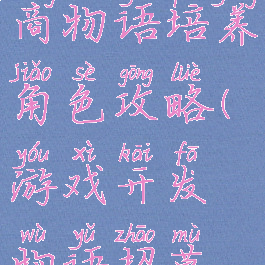 物语培养
jiǎo sè gōng lüè
角色攻略(
yóu xì kāi fā
游戏开发
wù yǔ zhāo mù
物语招募